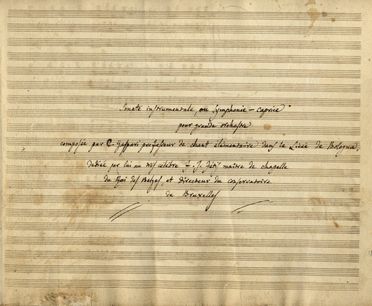 Sonate instrumentale ou Symphonie-caprice
pour grande orchestre
composée par G. Gaspari professeur de chant élémentaire dans le Licée de Bologna,
dediée par lui au très célèbre F. J. Fétis maître de chapelle
du Roi des Belges, et Directeur du conservatoire
de Bruxelles